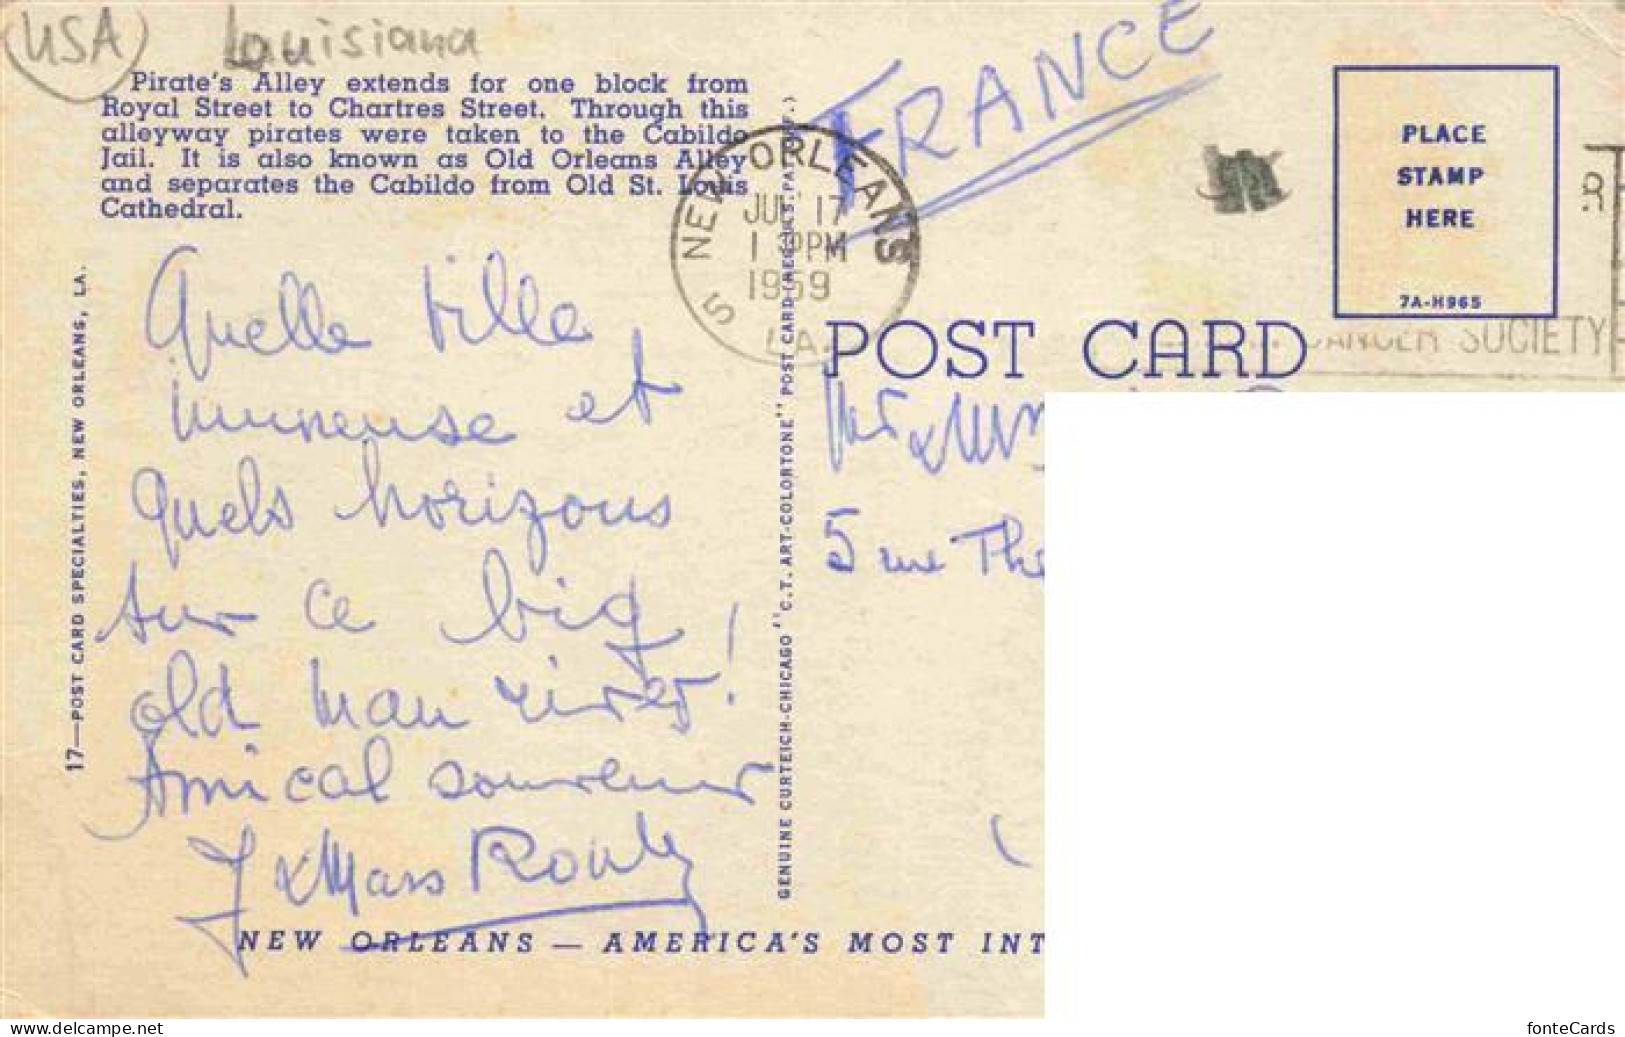 USA Louisiana
Pirate's Alley extends for one block from
Royal Street to Chartres Street. Through this
alleyway pirates were taken to the Cabildo
Jail. It is also known as Old Orleans Alley
and separates the Cabildo from Old St. Louis
Cathedral.
FRANCE
NEW ORLEANS
JUL 17
PM
1959
5 LA.
PLACE
STAMP
HERE
7A-H965
CANCER SOCIETY
POST CARD
Quelle ville
immense et
quels horizons
sur ce big
old man river!
Amical souvenir
5 rue The
17—POST CARD SPECIALTIES, NEW ORLEANS, LA.
GENUINE CURTEICH-CHICAGO "C.T. ART-COLORTONE" POST CARD (REG. U.S. PAT. OFF.)
NEW ORLEANS — AMERICA'S MOST INT
www.delcampe.net
fonteCards